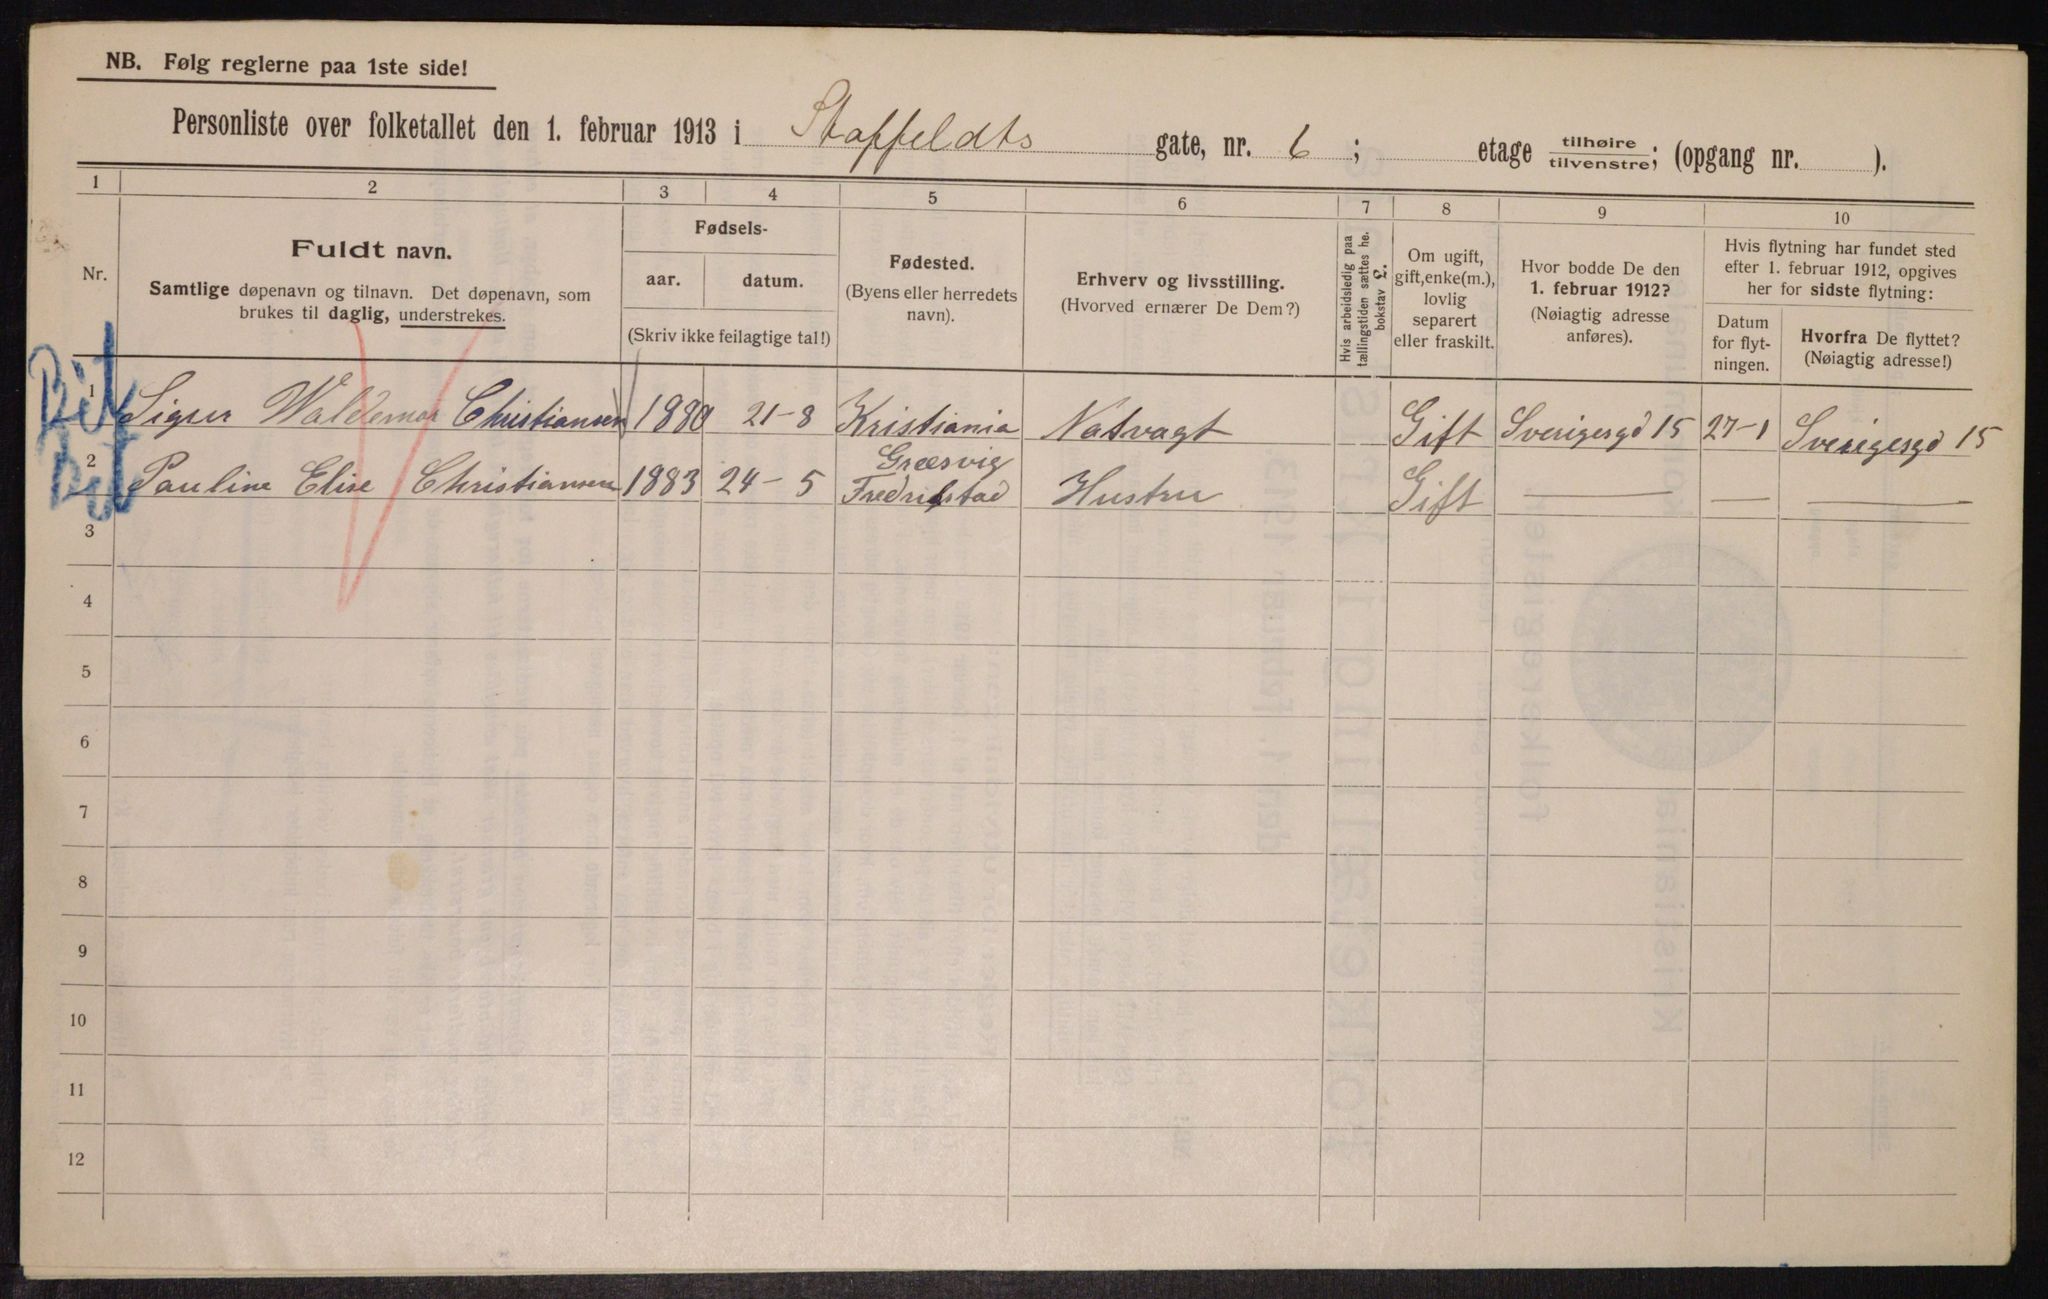 NB. Følg reglerne paa 1ste side!
Personliste over folketallet den 1. februar 1913 i Staffeldts gate, nr. 6; etage tilhøire/tilvenstre; (opgang nr. ).
1 2 3 4 5 6 7 8 9 10
Nr.
Fuldt navn.
Samtlige døpenavn og tilnavn. Det døpenavn, som
brukes til daglig, understrekes.
Fødsels-
aar. datum.
(Skriv ikke feilagtige tal!)
Fødested.
(Byens eller herredets
navn).
Erhverv og livsstilling.
(Hvorved ernærer De Dem?)
Hvis arbeidsledig paa
tællingstiden sættes he.
bokstav L.
Om ugift,
gift, enke(m.),
lovlig
separert
eller fraskilt.
Hvor bodde De den
1. februar 1912?
(Nøiagtig adresse
anføres).
Hvis flytning har fundet sted
efter 1. februar 1912, opgives
her for sidste flytning:
Datum
for flyt-
ningen.
Hvorfra De flyttet?
(Nøiagtig adresse!)
1 Waldemar Christiansen 1880 21-8 Kristiania Natvagt Gift Sverigesgd 15 27-1 Sverigesgd 15
Græsvig
2 Pauline Elise Christiansen 1883 24-5 Fredrikstad Hustru Gift — — —
3
4
5
6
7
8
9
10
11
12